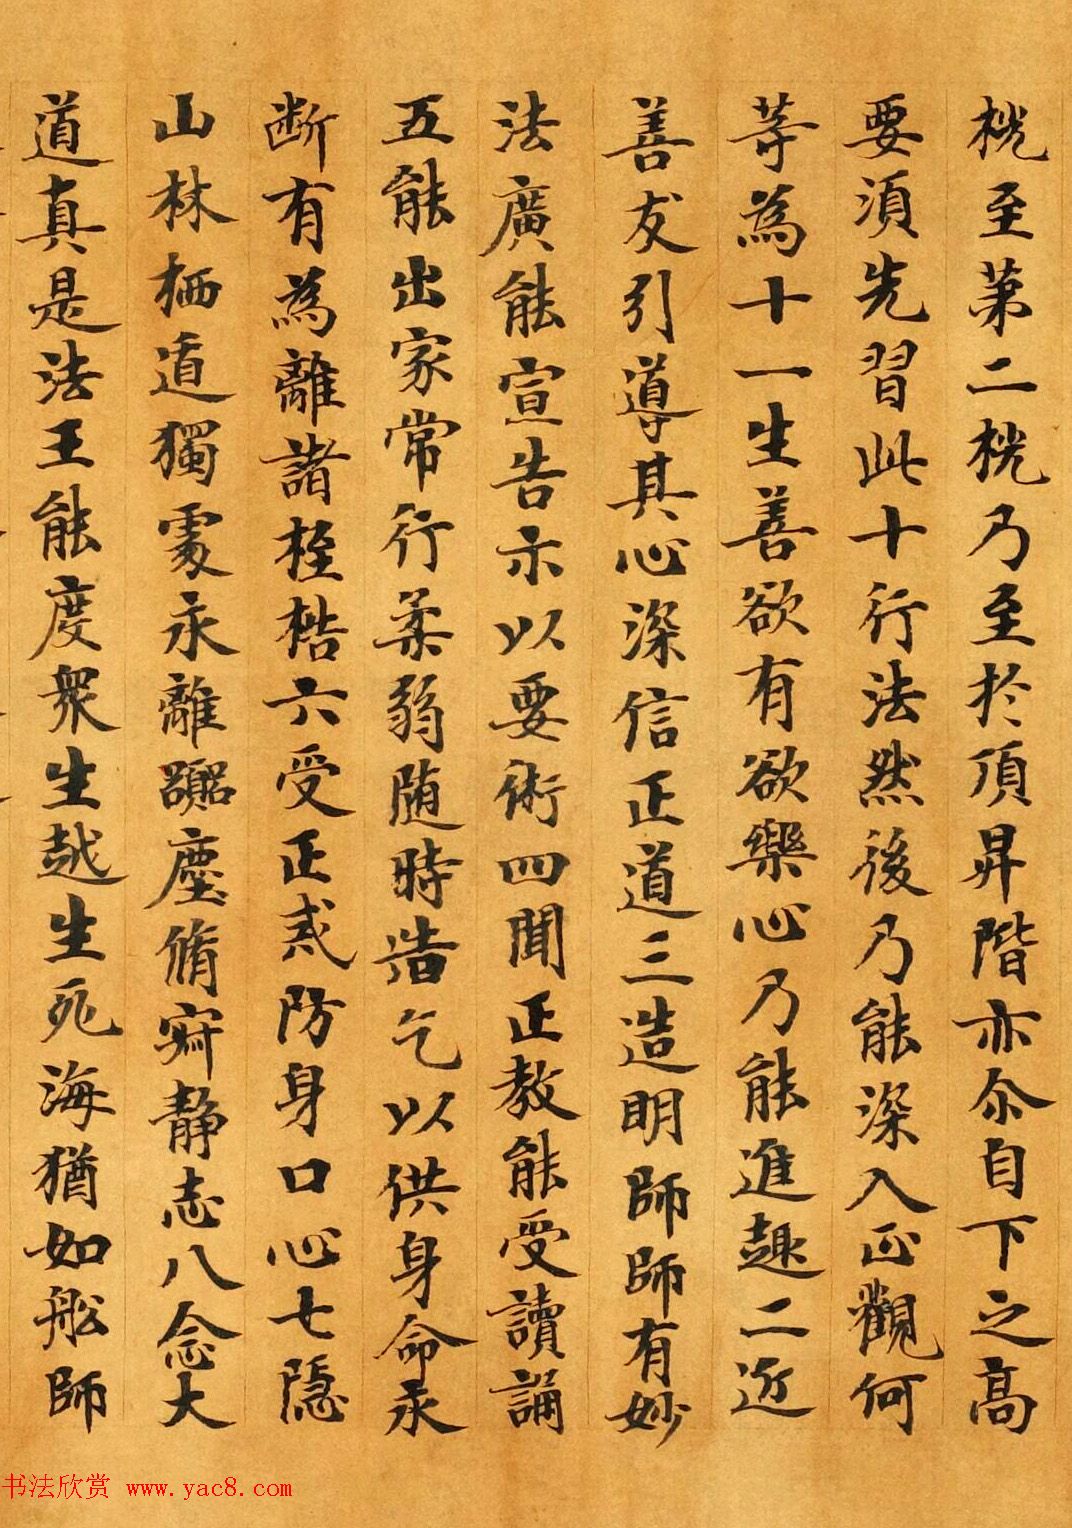 桄至第二桄乃至於頂昇階亦尒自下之高
要須先習此十行法然後乃能深入正觀何
等為十一生善欲有欲樂心乃能進趣二近
善友引導其心深信正道三造明師師有妙
法廣能宣告示以要術四聞正教能受讀誦
五能出家常行柔弱随時造乞以供身命永
断有為離諸桎梏六受正戒防身口心七隱
山林栖遁獨處永離嚻塵脩寂静志八念大
道真是法王能度衆生越生死海猶如舩師
书法欣赏 www.yac8.com